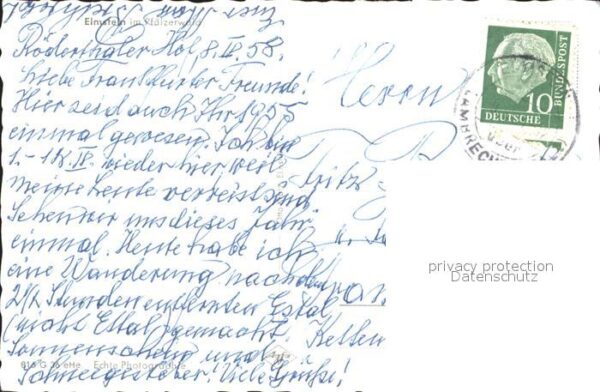 Elmstein im Pfälzerwald
Röderthaler Hof, 8.IV.58.
Liebe Frankfurter Freunde!
Hier seid auch Ihr 1955
einmal gewesen. Ich bin
1.-18.IV. wieder hier, weil
meine Leute verreist sind
Sehen wir uns dieses Jahr
einmal. Heute habe ich
eine Wanderung nach dem
2½ Stunden entfernten Estal,
(nicht Ettal) gemacht.
Sonnenschein und
Schneegestöber! Viele Grüße!
Herrn
Fritz
10
DEUTSCHE
BUNDESPOST
LAMBRECHT
privacy protection
Datenschutz
Echte Photographie